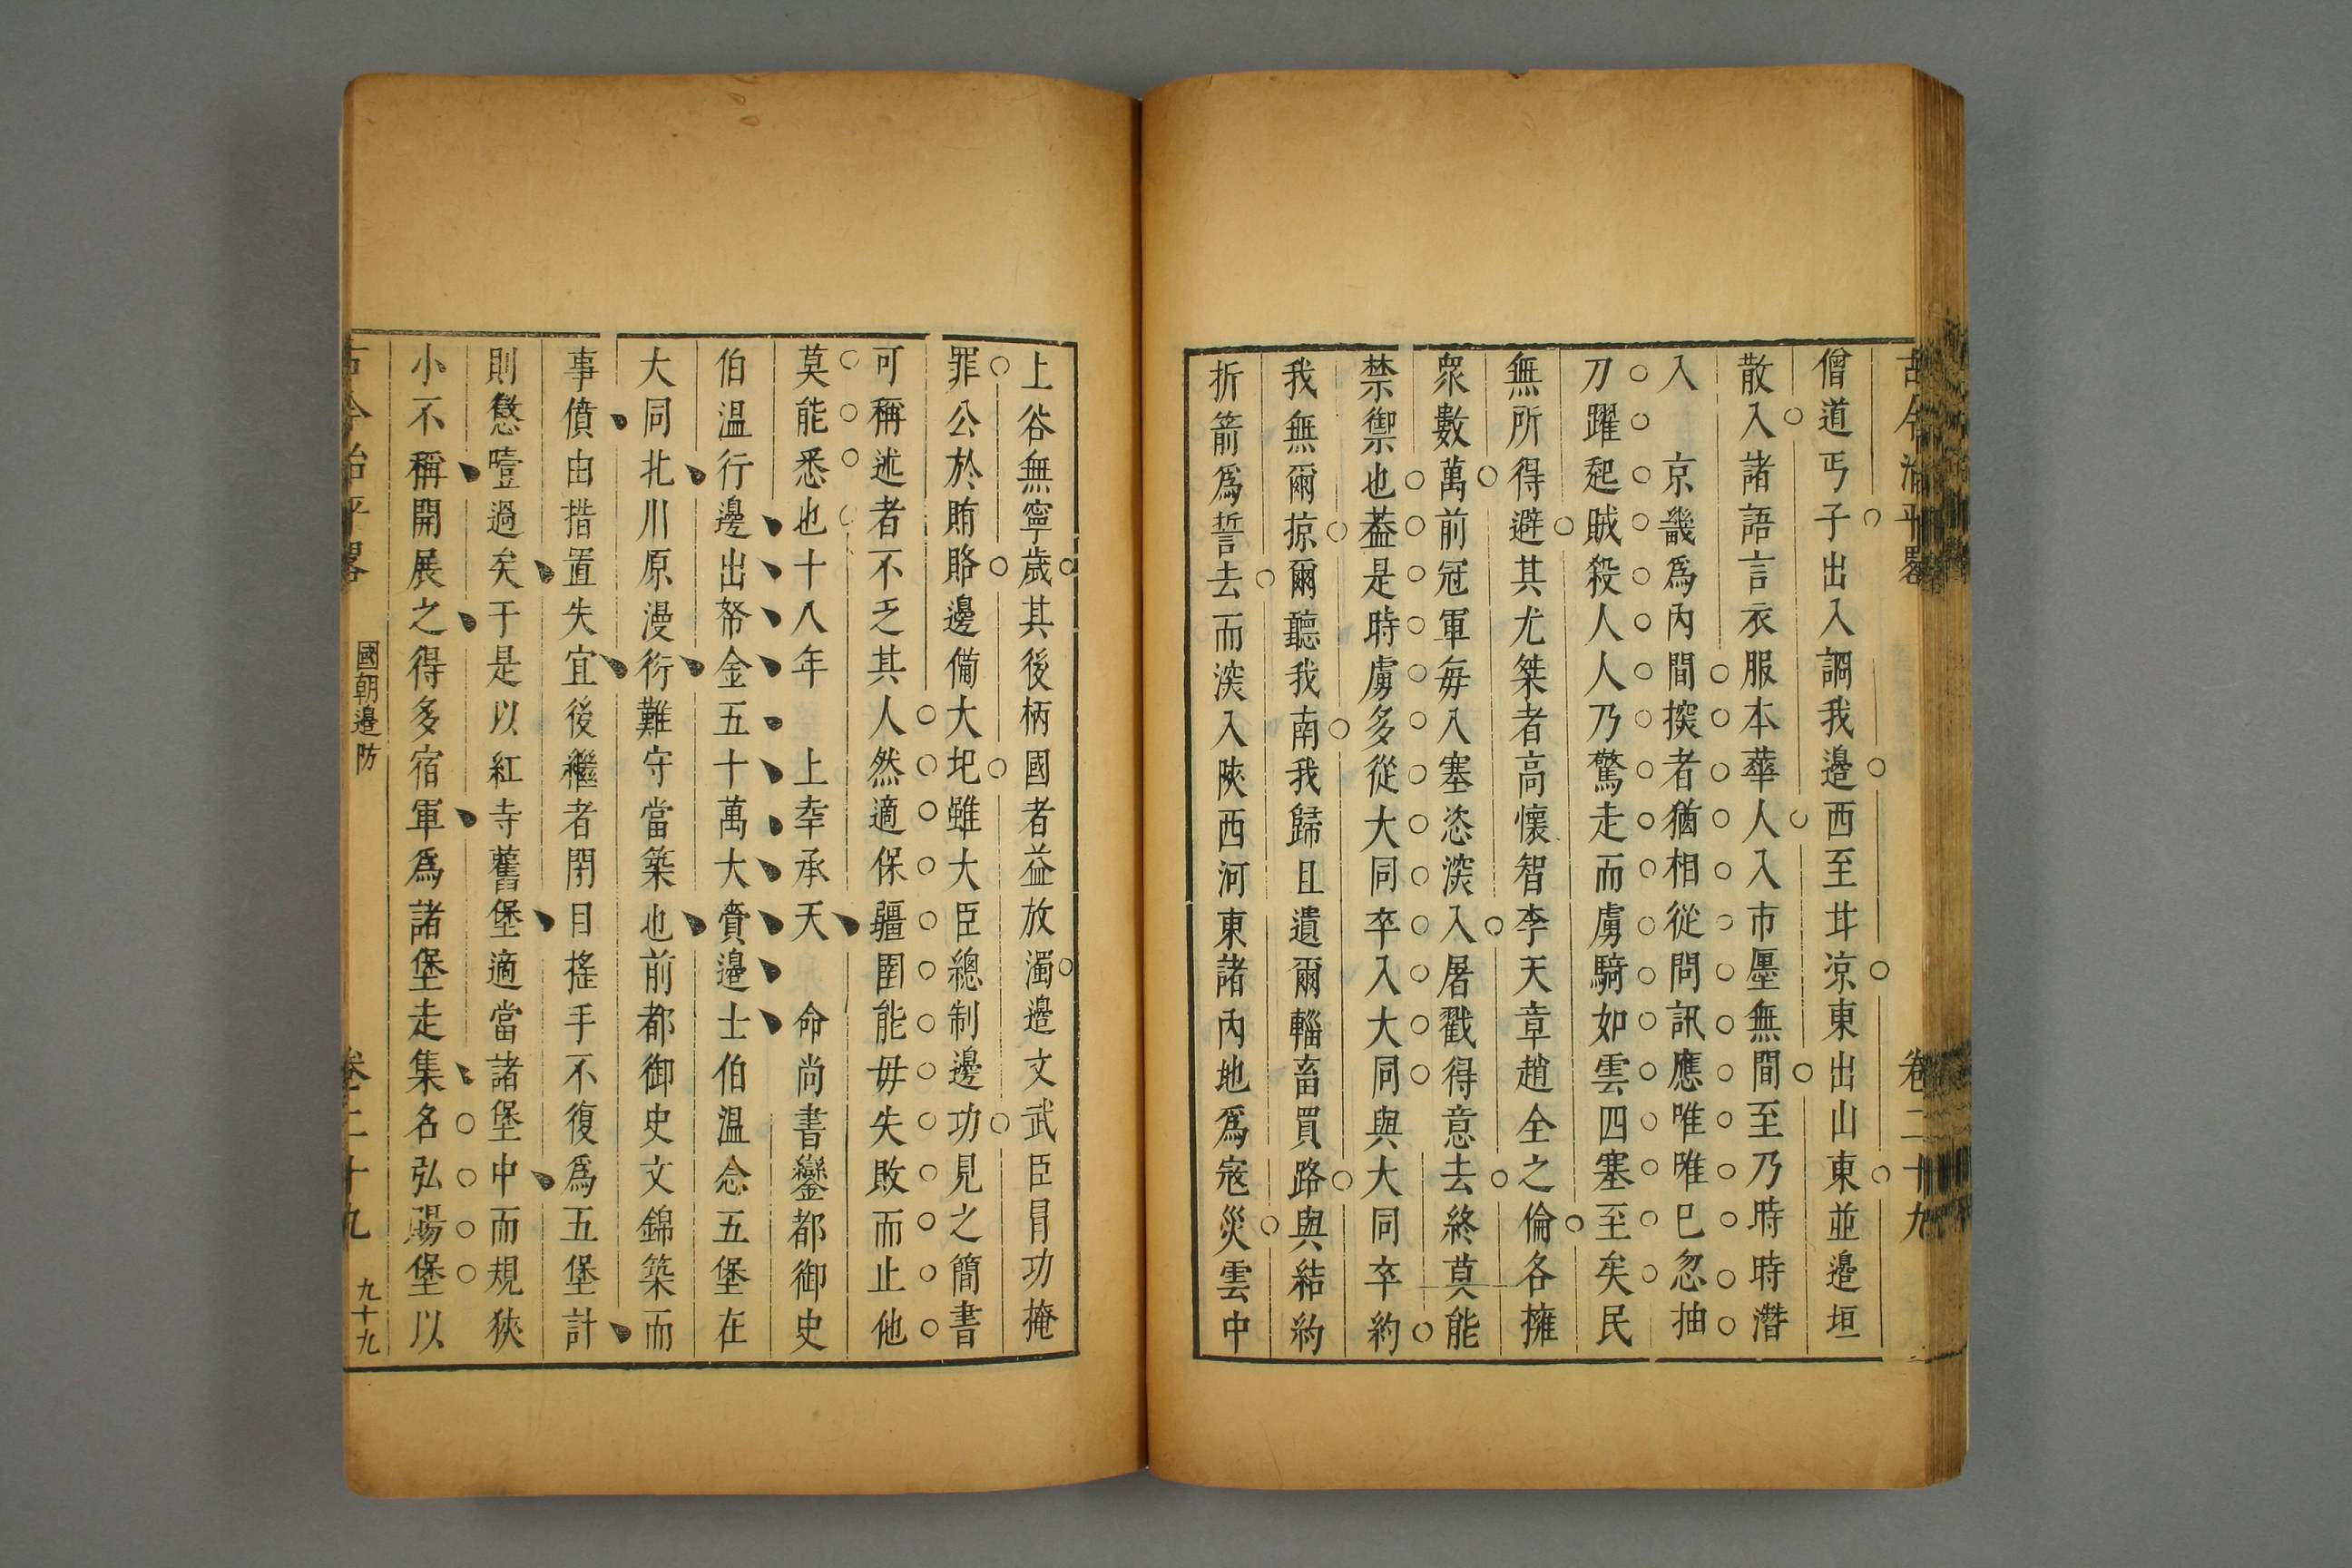 古今治平畧 卷二十九
僧道丐子出入調我邉西至甘凉東出山東並邉垣
散入諸語言衣服本華人入市廛無間至乃時時潛
入 京畿爲内間探者猶相從問訊應唯唯巳忽抽
刀躍起賊殺人人乃驚走而虜騎如雲四塞至矣民
無所得避其尤桀者高懷智李天章趙全之倫各擁
衆數萬前冠軍毎入塞恣深入屠戳得意去終莫能
禁禦也葢是時虜多從大同卒入大同與大同卒約
我無爾掠爾聽我南我歸且遺爾輜畜買路與結約
折箭爲誓去而深入陜西河東諸内地爲寇災雲中
上谷無寧歲其後柄國者益放濁邉文武臣冒功掩
罪公於賄賂邊備大圯雖大臣總制邊功見之簡書
可稱述者不乏其人然適保疆圉能毋失敗而止他
莫能悉也十八年 上幸承天 命尚書鑾都御史
伯温行邊出帑金五十萬大賚邉士伯温念五堡在
大同北川原漫衍難守當築也前都御史文錦築而
事僨由措置失宜後繼者閉目搖手不復爲五堡計
則懲噎過矣于是以紅寺舊堡適當諸堡中而規狹
小不稱開展之得多宿軍爲諸堡走集名弘賜堡以
古今治平畧 國朝邉防 卷二十九 九十九